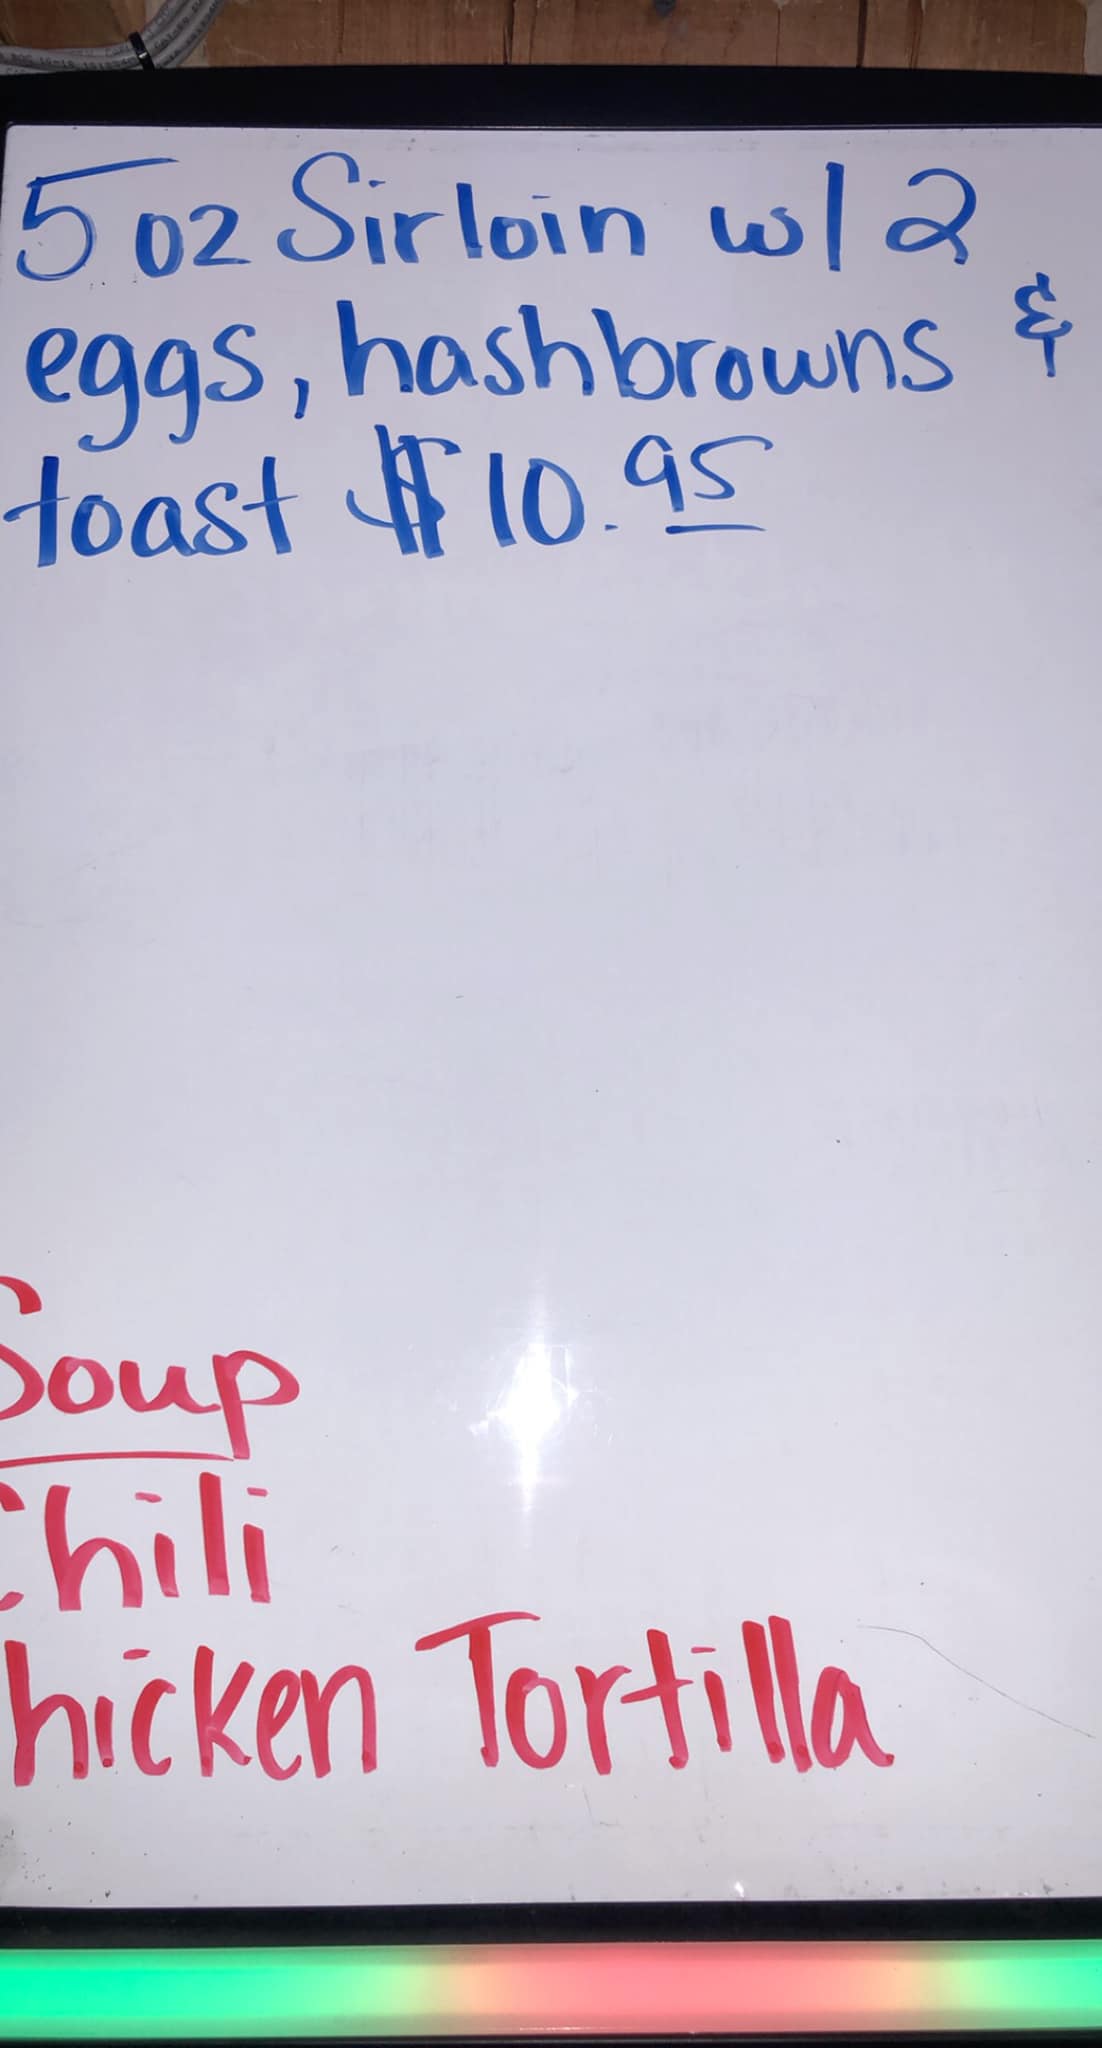 5 oz Sirloin w/ 2
eggs, hashbrowns &
toast $10.95
Soup
Chili
hicken Tortilla